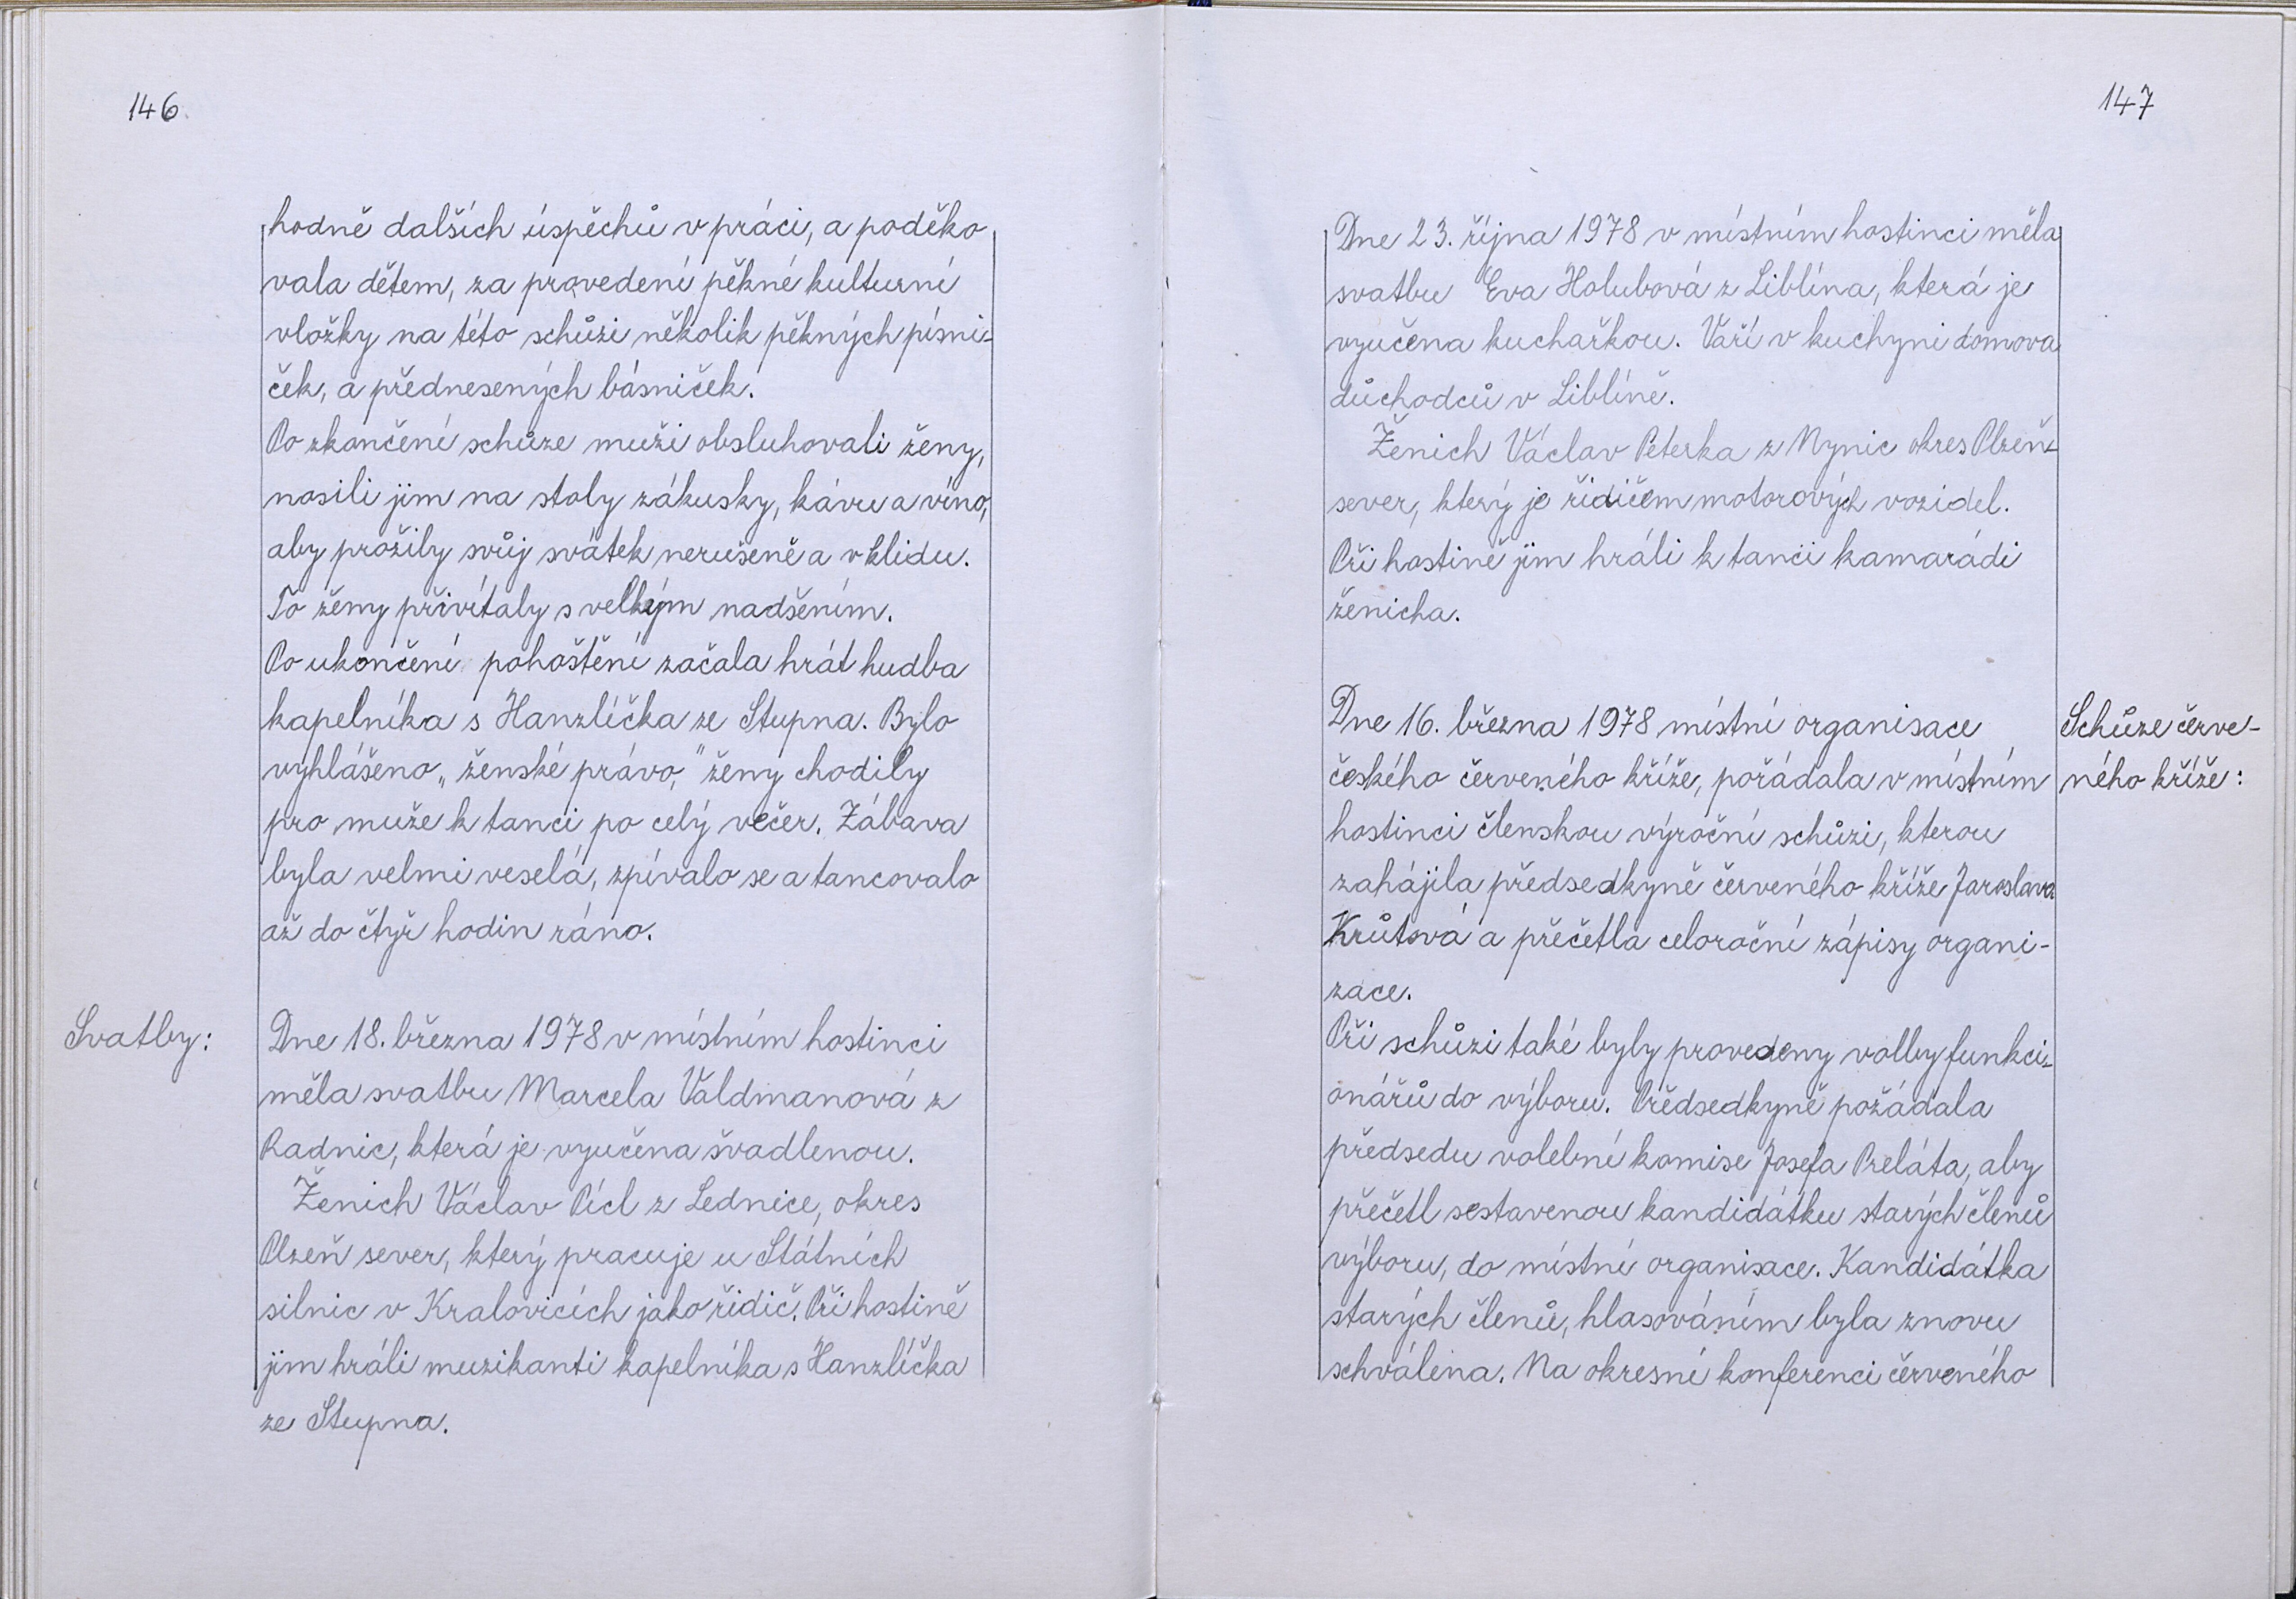 146.
hodně dalších úspěchů v práci, a poděko
vala dětem, za provedení pěkné kulturní
vložky na této schůzi několik pěkných písni-
ček, a přednesených básniček.
Po zkončení schůze muži obsluhovali ženy,
nosili jim na stoly zákusky, kávu a víno,
aby prožily svůj svátek nerušeně a v klidu.
To ženy přivítaly s velkým nadšením.
Po ukončení pohoštění začala hrát hudba
kapelníka s Hanzlíčka ze Stupna. Bylo
vyhlášeno „ženské právo," ženy chodily
pro muže k tanci po celý večer. Zábava
byla velmi veselá, zpívalo se a tancovalo
až do čtyř hodin ráno.
Svatby:
Dne 18. března 1978 v místním hostinci
měla svatbu Marcela Valdmanová z
Radnic, která je vyučena švadlenou.
Ženich Václav Pícl z Lednice, okres
Plzeň sever, který pracuje u Státních
silnic v Kralovicích jako řidič. Při hostině
jim hráli muzikanti kapelníka s Hanzlíčka
ze Stupna.
147
Dne 23. října 1978 v místním hostinci měla
svatbu Eva Holubová z Liblína, která je
vyučena kuchařkou. Vaří v kuchyni domova
důchodců v Liblíně.
Ženich Václav Peterka z Nynic okres Plzeň-
sever, který je řidičem motorových vozidel.
Při hostině jim hráli k tanci kamarádi
ženicha.
Dne 16. března 1978 místní organisace
českého červeného kříže, pořádala v místním
hostinci členskou výroční schůzi, kterou
zahájila předsedkyně červeného kříže Jaroslava
Krůtová a přečetla celoroční zápisy organi-
zace.
Při schůzi také byly provedeny volby funkci-
onářů do výboru. Předsedkyně požádala
předsedu volební komise Josefa Preláta, aby
přečetl sestavenou kandidátku starých členů
výboru, do místní organisace. Kandidátka
starých členů, hlasováním byla znovu
schválena. Na okresní konferenci červeného
Schůze červe-
ného kříže: